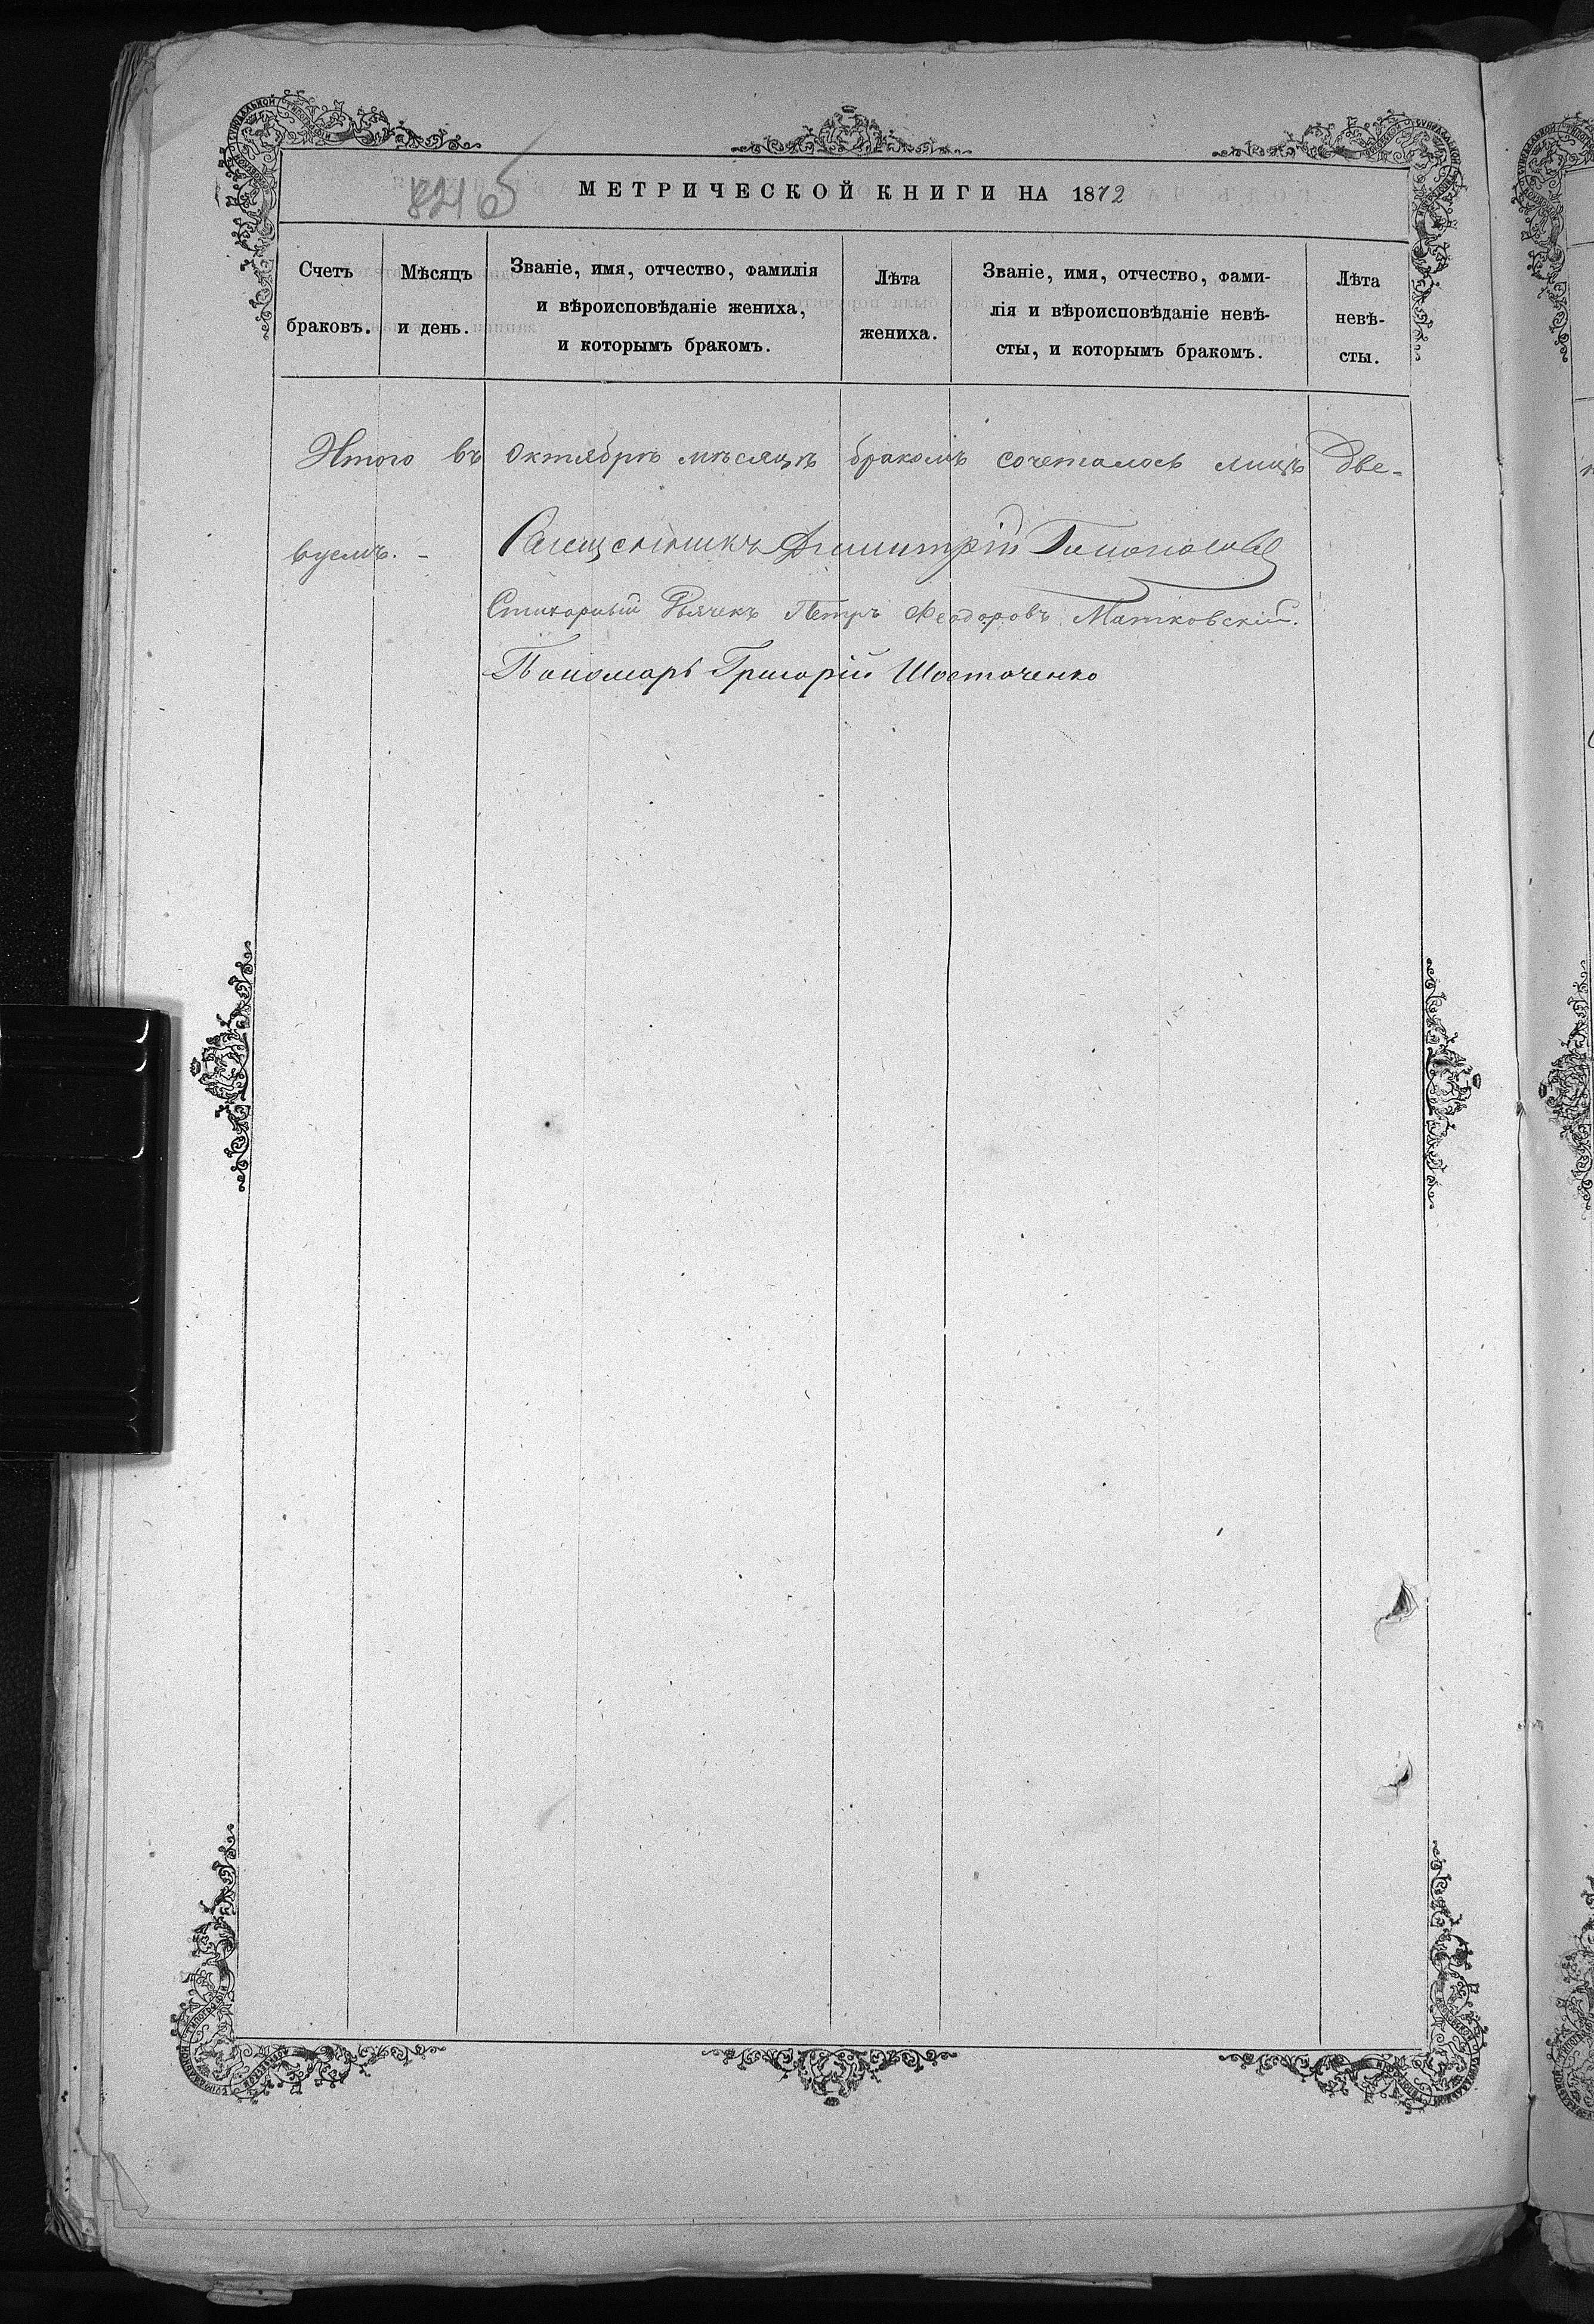 МЕТРИЧЕСКОЙ КНИГИ НА 1872
Счетъ браковъ.
Мѣсяцъ и день.
Званіе, имя, отчество, фамилія
и вѣроисповѣданіе жениха,
и которымъ бракомъ.
Лѣта жениха.
Званіе, имя, отчество, фами-
лія и вѣроисповѣданіе невѣ-
сты, и которымъ бракомъ.
Лѣта невѣ-
сты.
Итого въ Октябрѣ мѣсяцѣ бракомъ сочеталось лицъ две-
Священникъ Димитрій
Стихарный Дьячекъ Петръ Феодоровъ Матковскій.
Пономарь Григорій Шостаченко